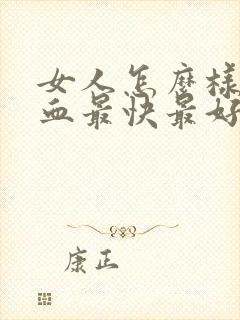 女人怎麼樣
血最快最好
康正